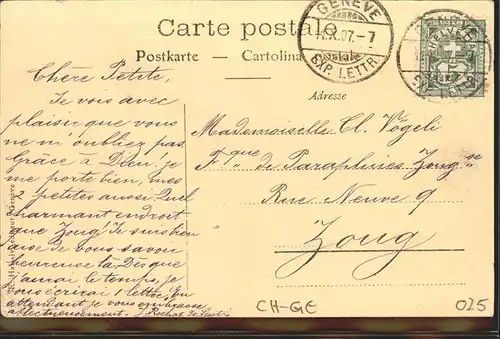 Carte postale
Postkarte — Cartolina postale
GENÈVE
EXP. LETTR.
HELVETIA
Adresse
Chère Petite,
Je vois avec
plaisir que vous
ne m'oubliez pas
Grâce à Dieu! je
me porte bien, mes
petites aussi. Quel
charmant endroit
que Zoug! Je suis bien
aise de vous savoir
heureuse là. Dès que
j'aurai le temps, je
vous écrirai 1 lettre. En
attendant, je vous embrasse
affectueusement. J. Rochat
Mademoiselle Cl. Vögeli
Fque de Parapluies Zougse
Rue Neuve 9
Zoug
CH-GE
025